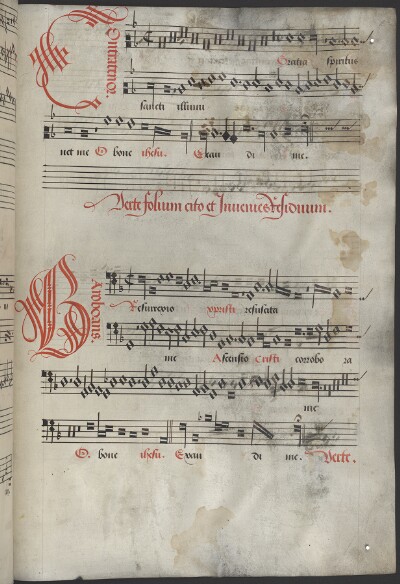 Contratenor.
Gratia spiritus
sancti illumi
net me O bone ihesu. Exau di me.
Verte folium cito et Invenies Residuum.
Baritonans
Resurrexio xpristi resuscita
me Ascensio cristi corrobo ra
me
O. bone ihesu. Exau di me. Verte.